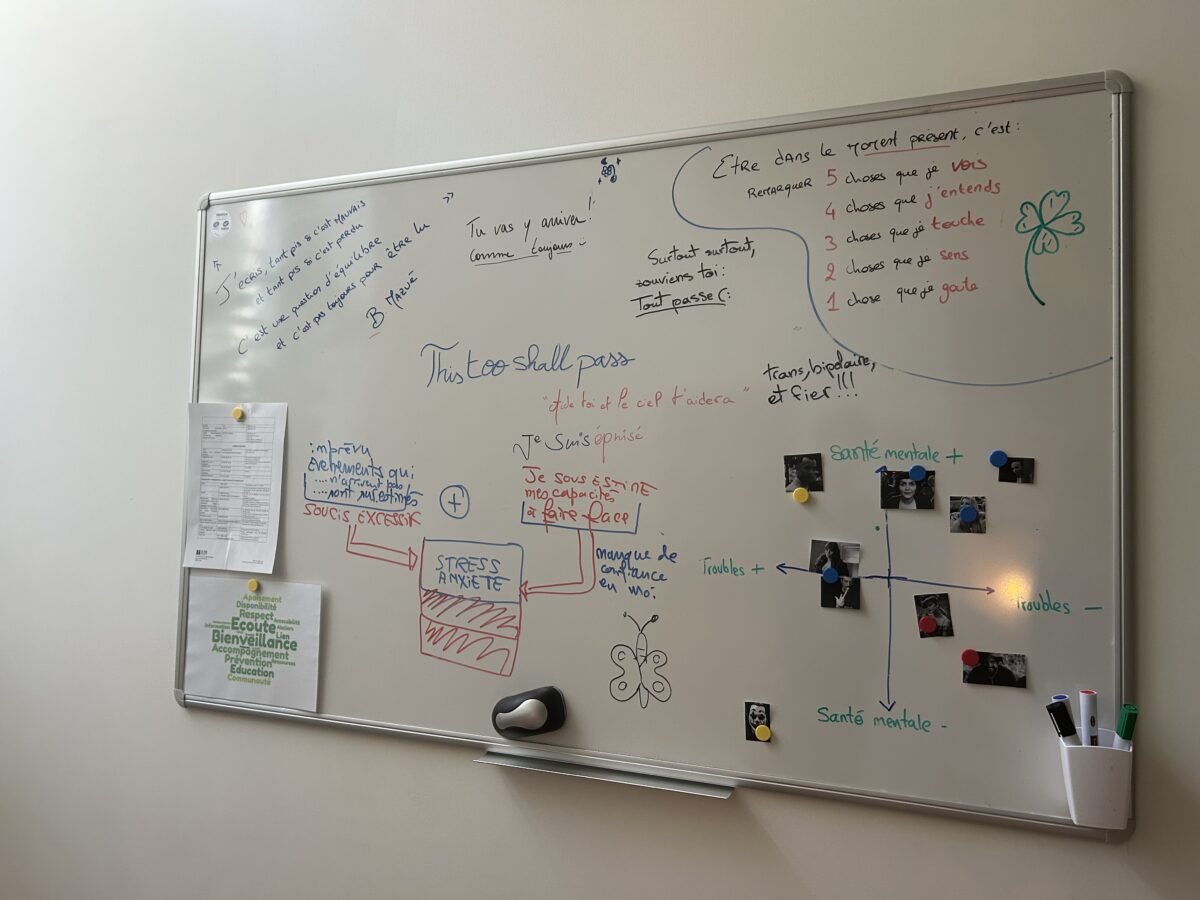 J'écris, tant pis si c'est mauvais
et tant pis si c'est perdu
C'est une question d'équilibre
et c'est pas toujours pour être lu
B Mazué
Tu vas y arriver !
comme toujours :)
Surtout surtout,
souviens toi :
Tout passe (:
Être dans le moment présent, c'est :
Remarquer 5 choses que je vois
4 choses que j'entends
3 choses que je touche
2 choses que je sens
1 chose que je goûte
This too shall pass
trans, bipolaire,
et fier !!!
"aide toi et le ciel t'aidera"
Je suis épuisé
imprévu
Évènements qui
....n'arrivent pas !
....sont surestimés
SOUCIS EXCESSIF
+
Je SOUS ESTIME
mes capacités
à faire face
manque de
confiance
en moi
STRESS
ANXIÉTÉ
Santé mentale +
Troubles +
Troubles -
Santé mentale -
Apaisement
Disponibilité
Respect Accessibilité
Information Ecoute Ateliers
Bienveillance Lien
Accompagnement
Prévention Ressources
Education
Communauté